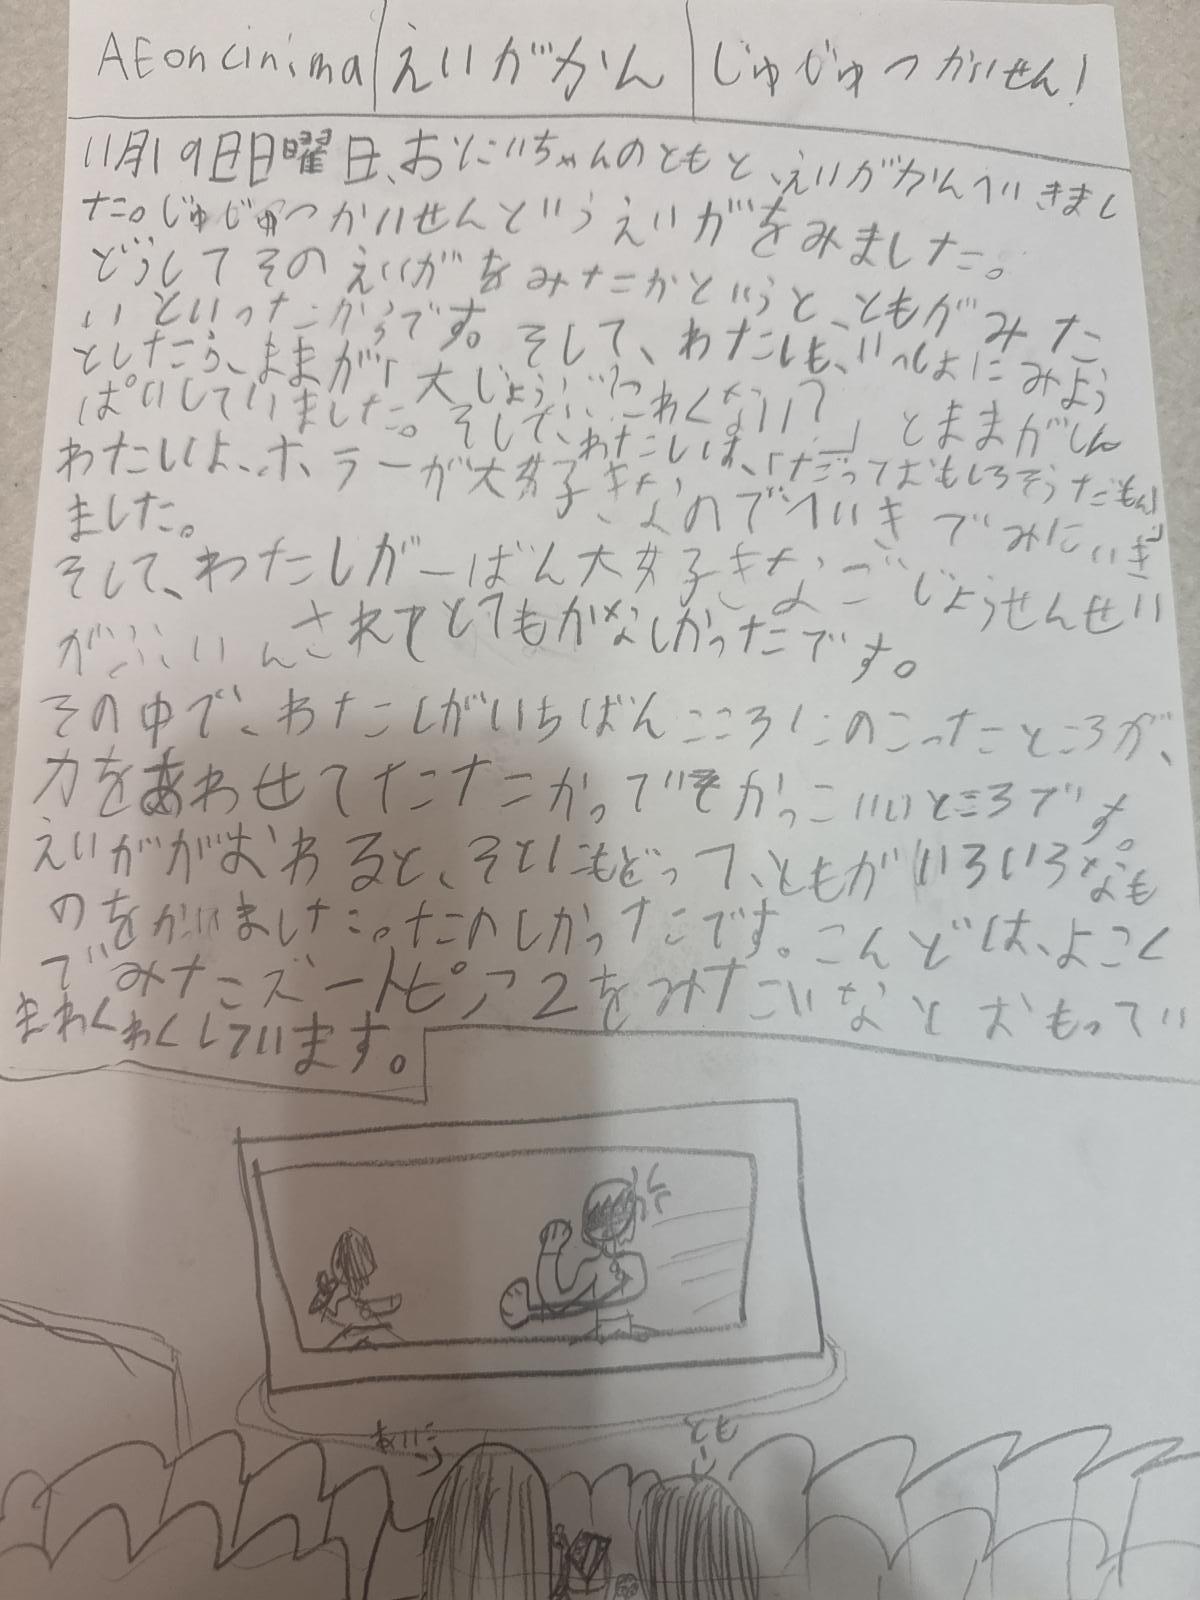 AEon cinima えいがかん じゅじゅつかいせん!
11月19日日曜日、おにいちゃんのともと、えいがかんへいきまし
た。じゅじゅつかいせんどいうえいがをみました。
どうしてそのえいがをみたかというと、ともがみた
いといったからです。そして、わたしも、いっしょにみよう
としたら、ままが「大じょうぶ?こわくない?」とままがしん
ぱいしていました。そして、わたしは、「だっておもしろそうだもん」
わたしは、ホラーが大好きなのでへいきでみにいき
ました。
そして、わたしが一ばん大好きなごじょうせんせい
がふういんされてとてもかなしかったです。
その中で、わたしがいちばんこころにのこったところが、
力をあわせてたたかっでそかっこいいところです。
えいががおわると、そとにもどって、ともがいろいろなも
のをかいました。たのしかったです。こんどは、よこく
でみたズートピア2をみたいなとおもってい
まわくわくしています。
あいこ
とも